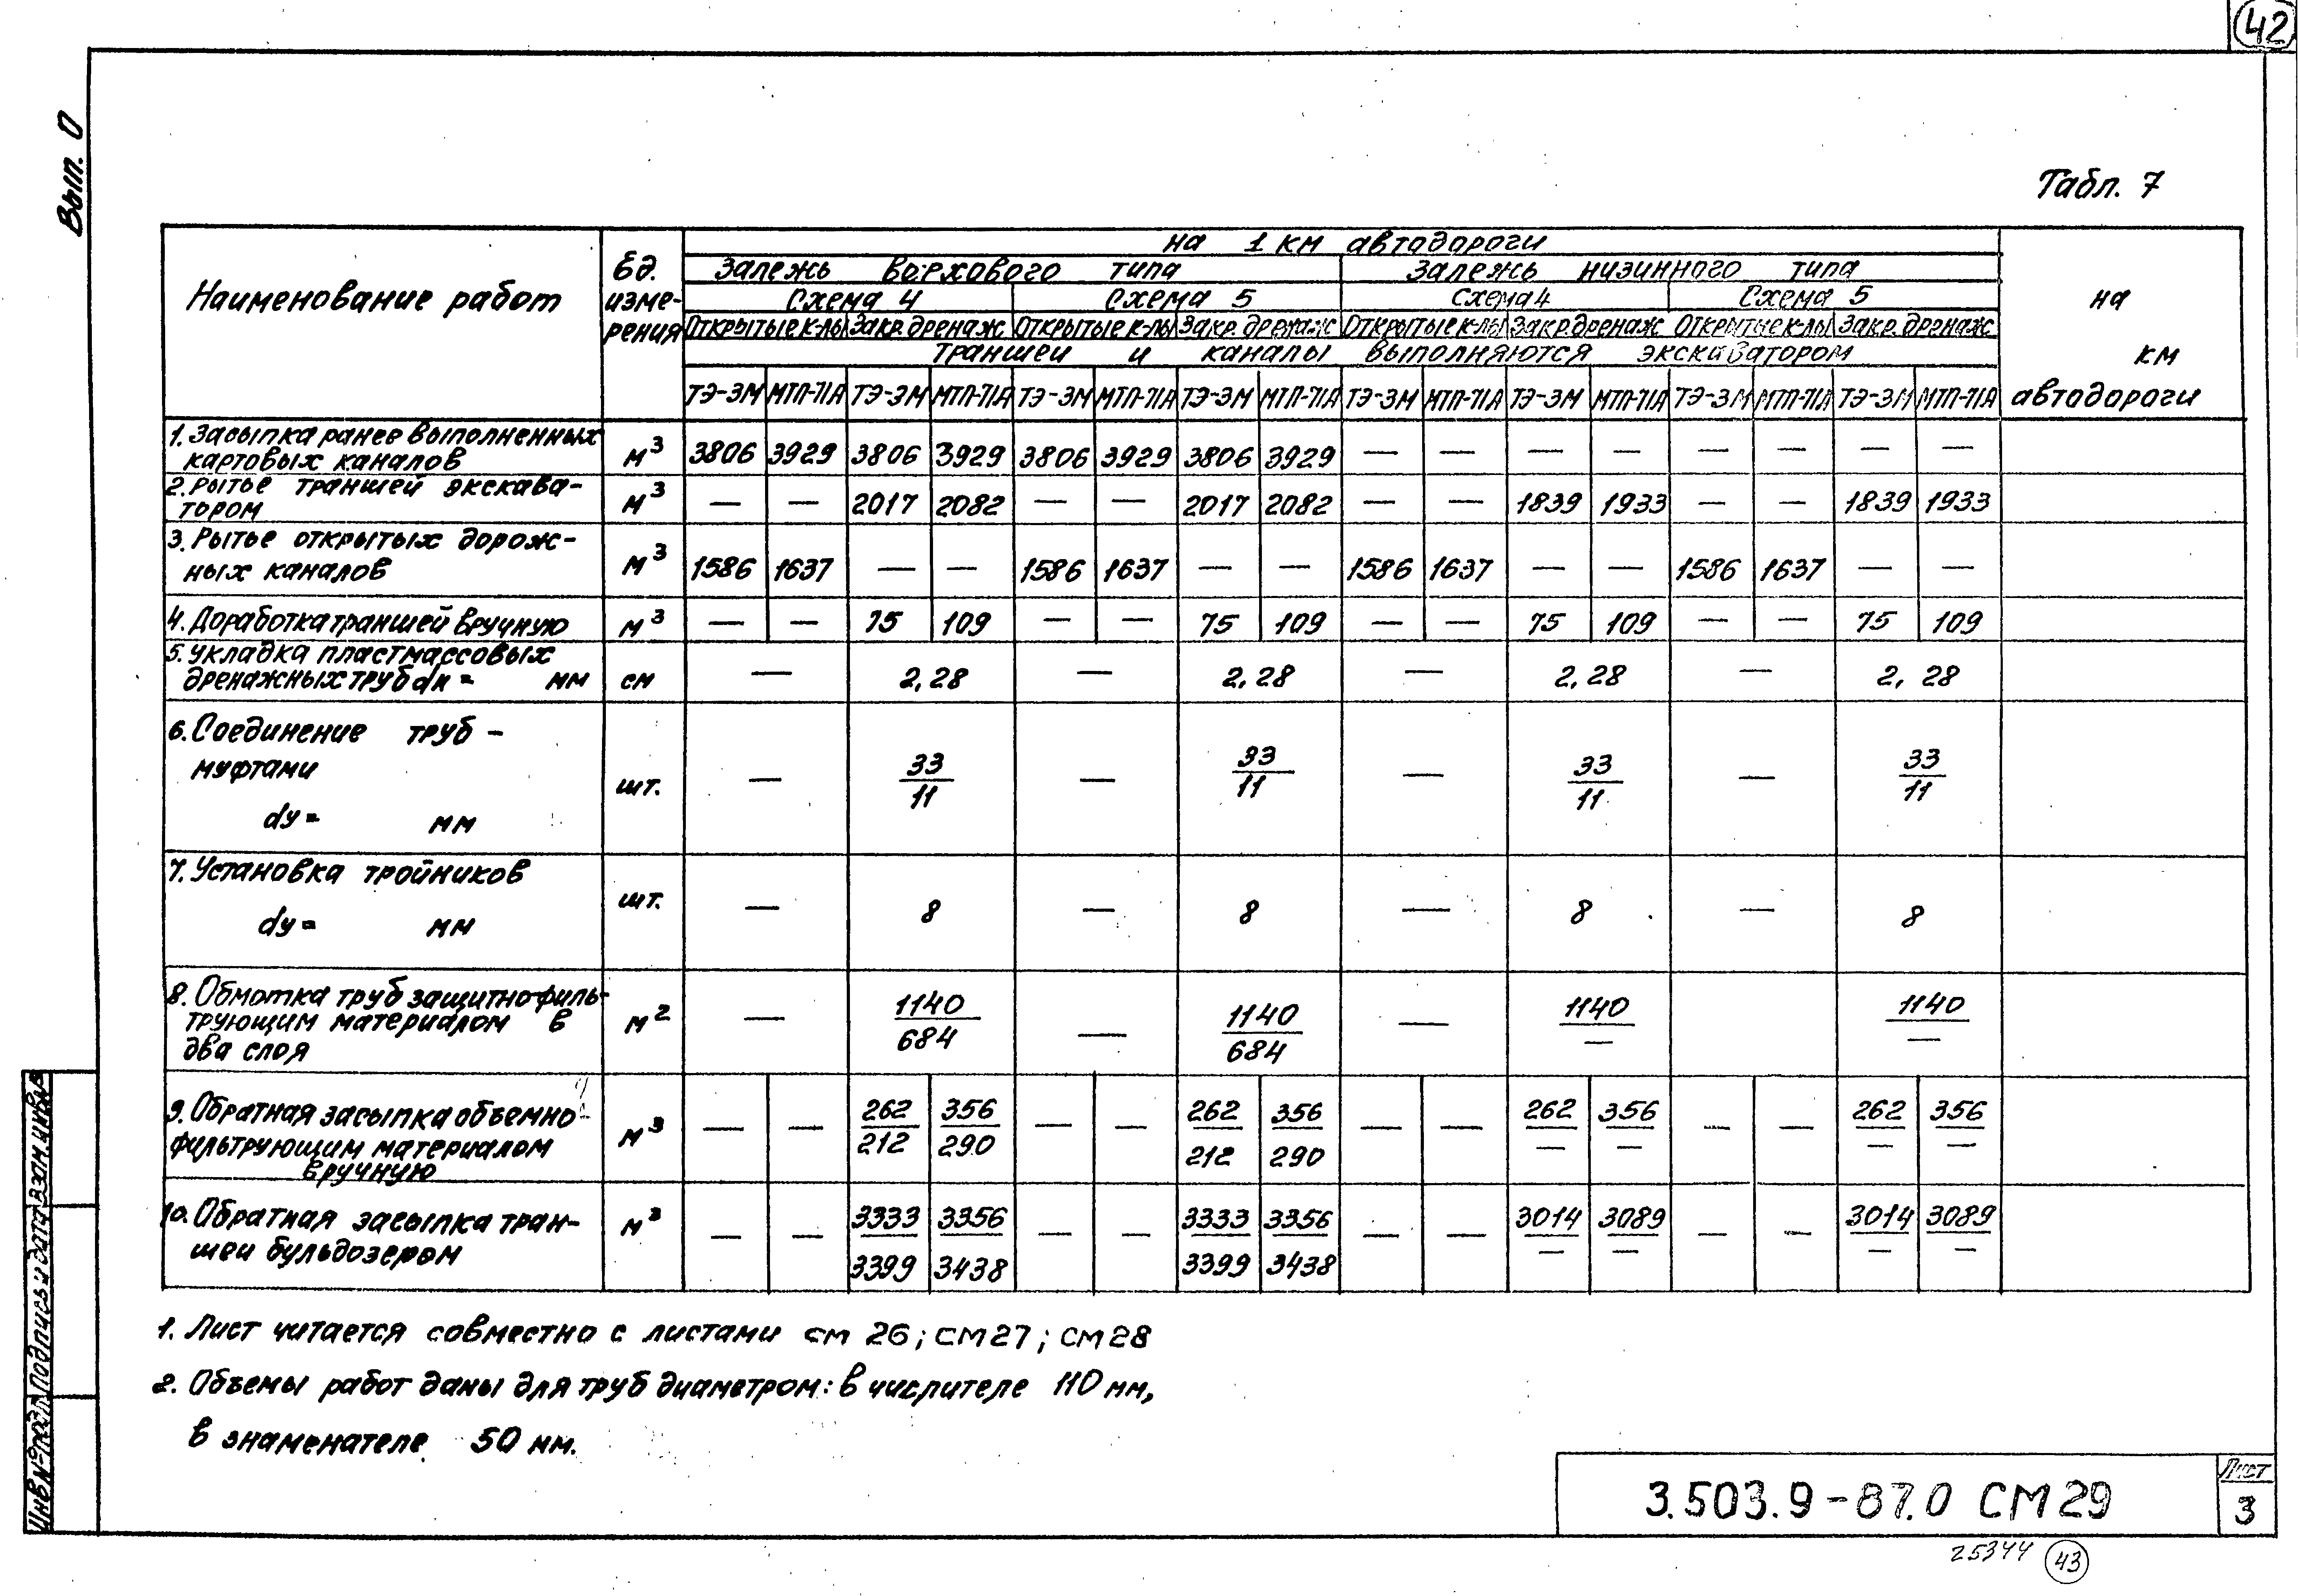 42
Вып. 0
Табл. 7
Наименование работ
Ед. измерения
на 1 км автодороги
на км автодороги
Залежь верхового типа Залежь низинного типа
Схема 4 Схема 5 Схема 4 Схема 5
Открытые к-лы Закр. дренаж Открытые к-лы Закр. дренаж Открытые к-лы Закр. дренаж Открытые к-лы Закр. дренаж
Траншеи и каналы выполняются экскаватором
ТЭ-3М МТП-71А ТЭ-3М МТП-71А ТЭ-3М МТП-71А ТЭ-3М МТП-71А ТЭ-3М МТП-71А ТЭ-3М МТП-71А ТЭ-3М МТП-71А ТЭ-3М МТП-71А
1. Засыпка ранее выполненных
картовых каналов м³ 3806 3929 3806 3929 3806 3929 3806 3929 — — — — — — — —
2. Рытье траншей экскава-
тором м³ — — 2017 2082 — — 2017 2082 — — 1839 1933 — — 1839 1933
3. Рытье открытых дорож-
ных каналов м³ 1586 1637 — — 1586 1637 — — 1586 1637 — — 1586 1637 — —
4. Доработка траншей вручную м³ — — 75 109 — — 75 109 — — 75 109 — — 75 109
5. Укладка пластмассовых
дренажных труб dн = мм см — 2,28 — 2,28 — 2,28 — 2,28
6. Соединение труб -
муфтами
dу = мм шт. — 33/11 — 33/11 — 33/11 — 33/11
7. Установка тройников
dу = мм шт. — 8 — 8 — 8 — 8
8. Обмотка труб защитно-филь-
трующим материалом в
два слоя м² — 1140/684 — 1140/684 — 1140/— — 1140/—
9. Обратная засыпка объемно
фильтрующим материалом
вручную м³ — — 262/212 356/290 — — 262/212 356/290 — — 262/— 356/— — — 262/— 356/—
10. Обратная засыпка тран-
шеи бульдозером м³ — — 3333/3399 3356/3438 — — 3333/3399 3356/3438 — — 3014/— 3089/— — — 3014/— 3089/—
1. Лист читается совместно с листами см 26; СМ27; СМ28
2. Объемы работ даны для труб диаметром: в числителе 110 мм,
в знаменателе 50 мм.
Инв.№ подл. Подпись и дата Взам.инв.№
3.503.9-87.0 СМ29
Лист
3
25344 43